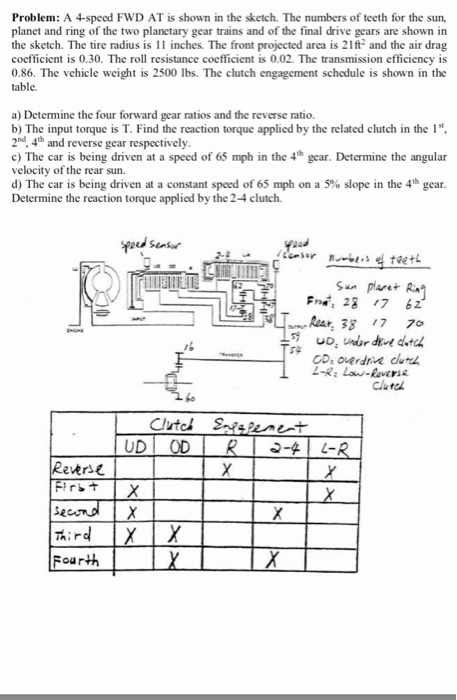 Problem: A 4-speed FWD AT is shown in the sketch. The numbers of teeth for the sun,
planet and ring of the two planetary gear trains and of the final drive gears are shown in
the sketch. The tire radius is 11 inches. The front projected area is 21ft² and the air drag
coefficient is 0.30. The roll resistance coefficient is 0.02. The transmission efficiency is
0.86. The vehicle weight is 2500 lbs. The clutch engagement schedule is shown in the
table.
a) Determine the four forward gear ratios and the reverse ratio.
b) The input torque is T. Find the reaction torque applied by the related clutch in the 1st,
2nd, 4th and reverse gear respectively.
c) The car is being driven at a speed of 65 mph in the 4th gear. Determine the angular
velocity of the rear sun.
d) The car is being driven at a constant speed of 65 mph on a 5% slope in the 4th gear.
Determine the reaction torque applied by the 2-4 clutch.
speed sensor
speed
sensor
numbers of teeth
UD OD
2-4 LR
62
70
Sun planet Ring
Front: 28 17 62
Rear: 38 17 70
INPUT
OUTPUT
ENGINE
59
54
TRANSFER
16
60
UD: Under drive clutch
OD: overdrive clutch
L-R: Low-Reverse
Clutch
Clutch Engagement
UD OD R 2-4 L-R
Reverse X X
First X X
Second X X
Third X X
Fourth X X